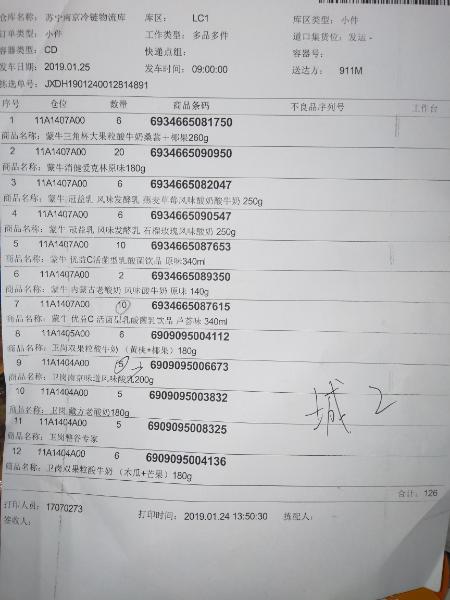 仓库名称: 苏宁南京冷链物流库 库区: LC1 库区类型: 小件
订单类型: 小件 工作类型: 多品多件 道口集货位: 发运-
容器类型: CD 快递点组: 容器号:
发车日期: 2019.01.25 发车时间: 09:00:00 送达方: 911M
拣选单号: JXDH1901240012814891
序号 仓位 数量 商品条码 不良品序列号 工作台
1 11A1407A00 6 6934665081750
商品名称: 蒙牛三角杯大果粒酸牛奶桑葚+椰果260g
2 11A1407A00 20 6934665090950
商品名称: 蒙牛消健爱克林原味180g
3 11A1407A00 6 6934665082047
商品名称: 蒙牛 冠益乳 风味发酵乳 燕麦草莓风味酸奶酸牛奶 250g
4 11A1407A00 6 6934665090547
商品名称: 蒙牛 冠益乳 风味发酵乳 石榴玫瑰风味酸奶 250g
5 11A1407A00 10 6934665087653
商品名称: 蒙牛 优益C活菌型乳酸菌饮品 原味340ml
6 11A1407A00 2 6934665089350
商品名称: 蒙牛 内蒙古老酸奶 风味酸牛奶 原味 140g
7 11A1407A00 10 6934665087615
商品名称: 蒙牛 优益C 活菌型乳酸菌乳饮品 芦荟味 340ml
8 11A1405A00 6 6909095004112
商品名称: 卫岗双果粒酸牛奶 (黄桃+椰果) 180g
9 11A1404A00 5 6909095006673
商品名称: 卫岗南京味道风味酸乳200g
10 11A1404A00 5 6909095003832
商品名称: 卫岗 藏方老酸奶180g
11 11A1404A00 5 6909095008325
商品名称: 卫岗整谷专家
12 11A1404A00 6 6909095004136
商品名称: 卫岗双果粒酸牛奶 (木瓜+芒果) 180g
城 2
合计: 126
打印人员: 17070273 打印时间: 2019.01.24 13:50:30 拣配人:
签收人: